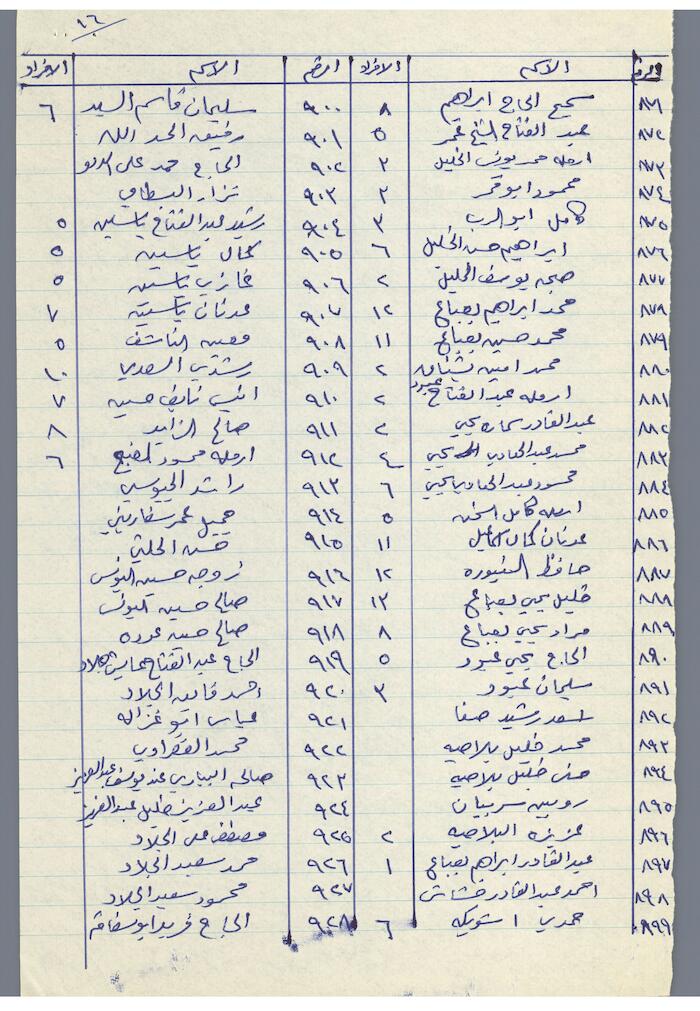 ١٦
الرقم الاسم الافراد الرقم الاسم الافراد
٨٧١ سميح الحاج ابراهيم ٨ ٩٠٠ سليمان قاسم السيد ٦
٨٧٢ عبد الفتاح الشيخ عمر ٥ ٩٠١ رفيقه الحمد الله
٨٧٣ ارمله محمد يوسف الخليل ٢ ٩٠٢ الحاج محمد علي
٨٧٤ محمود ابو قمر ٢ ٩٠٣ نزار البسطامي
٨٧٥ كامل ابو الرب ٣ ٩٠٤ رشيد عبد الفتاح ياسين ٥
٨٧٦ ابراهيم حسن الخليل ٦ ٩٠٥ كمال ياسين ٥
٨٧٧ يوسف الخليل ٢ ٩٠٦ غازي ياسين ٥
٨٧٨ محمد ابراهيم بعباع ١٢ ٩٠٧ عدنان ياسين ٧
٨٧٩ محمد حسين بعباع ١١ ٩٠٨ معين الناشف ٥
٨٨٠ محمد امين بشناق ٢ ٩٠٩ رشدي السعدي ١٠
٨٨١ ارمله عبد الفتاح عبود ٢ ٩١٠ انيس نايف حسين ٧
٨٨٢ عبد القادر يحيى ٢ ٩١١ صالح الزايد ٨
٨٨٣ محمد عبد الهادي يحيى ٤ ٩١٢ ارمله محمود ٦
٨٨٤ محمود عبد الهادي يحيى ٦ ٩١٣ راشد الجيوسي
٨٨٥ ارمله كامل ٥ ٩١٤ جميل عمر سفاريني
٨٨٦ عدنان كمال اسماعيل ١١ ٩١٥ حسن الحلتي
٨٨٧ حافظ السنيوره ١٢ ٩١٦ زوجه حسين اليونس
٨٨٨ خليل يحيى بعباع ١٣ ٩١٧ صالح حسين اليونس
٨٨٩ مراد يحيى بعباع ٨ ٩١٨ صالح حسين عوده
٨٩٠ الحاج يحيى عبود ٥ ٩١٩ الحاج عبد الفتاح الجلاد
٨٩١ سليمان عبود ٣ ٩٢٠ احمد الجلاد
٨٩٢ اسعد رشيد صفا ٩٢١ عباس ابو غزاله
٨٩٣ محمد خليل بلاصيه ٩٢٢ محمد القصراوي
٨٩٤ حسني خليل بلاصيه ٩٢٣ صالحه البياري عند يوسف عبد العزيز
٨٩٥ سربيان ٩٢٤ عبد العزيز خليل عبد العزيز
٨٩٦ عزيزه البلاصيه ٢ ٩٢٥ مصطفى علي الجلاد
٨٩٧ عبد القادر ابراهيم بعباع ١ ٩٢٦ محمد سعيد الجلاد
٨٩٨ احمد عبد القادر خشان ٩٢٧ محمود سعيد الجلاد
٨٩٩ حمدي اشويكه ٦ ٩٢٨ الحاج فريد ابو شفاقه